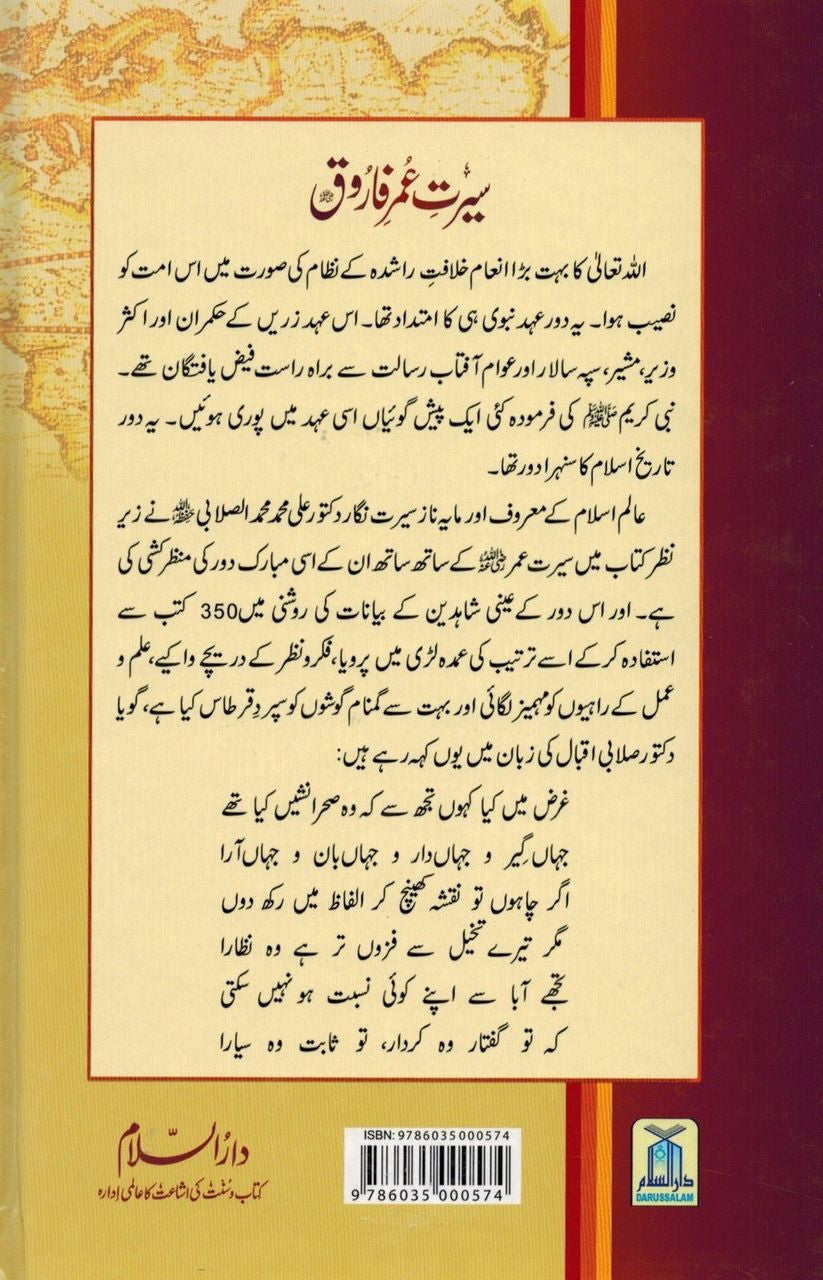 سیرتِ عُمرِ فارُوق ؓ
اللہ تعالیٰ کا بہت بڑا انعام خلافتِ راشدہ کے نظام کی صورت میں اس امت کو
نصیب ہوا۔ یہ دور عہد نبوی ہی کا امتداد تھا۔ اس عہد زریں کے حکمران اور اکثر
وزیر، مشیر، سپہ سالار اور عوام آفتاب رسالت سے براہ راست فیض یافتگان تھے۔
نبی کریم ﷺ کی فرمودہ کئی ایک پیش گوئیاں اسی عہد میں پوری ہوئیں۔ یہ دور
تاریخ اسلام کا سنہرا دور تھا۔
عالم اسلام کے معروف اور مایہ ناز سیرت نگار دکتور علی محمد محمد الصلابی حفظہ اللہ نے زیر
نظر کتاب میں سیرت عمر رضی اللہ عنہ کے ساتھ ساتھ ان کے اسی مبارک دور کی منظر کشی کی
ہے۔ اور اس دور کے عینی شاہدین کے بیانات کی روشنی میں 350 کتب سے
استفادہ کر کے اسے ترتیب کی عمدہ لڑی میں پرویا، فکر و نظر کے دریچے وا کیے، علم و
عمل کے راہیوں کو مہمیز لگائی اور بہت سے گمنام گوشوں کو سپردِ قرطاس کیا ہے، گویا
دکتور صلابی اقبال کی زبان میں یوں کہہ رہے ہیں:
غرض میں کیا کہوں تجھ سے کہ وہ صحرا نشیں کیا تھے
جہاں گیر و جہاں دار و جہاں بان و جہاں آرا
اگر چاہوں تو نقشہ کھینچ کر الفاظ میں رکھ دوں
مگر تیرے تخیل سے فزوں تر ہے وہ نظارا
تجھے آبا سے اپنے کوئی نسبت ہو نہیں سکتی
کہ تو گفتار وہ کردار، تو ثابت وہ سیارا
دارُ السّلام
کتاب و سنّت کی اشاعت کا عالمی ادارہ
ISBN: 9786035000574
9 786035 000574
دار السلام
DARUSSALAM